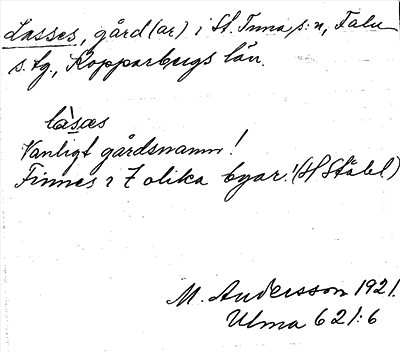 Lasses, gård(ar) i St. Tuna s:n, Falu
s. tg., Kopparbergs län.
làsæs
Vanligt gårdsnamn!
Finnes i 7 olika byar! (H Ståhl)
M. Andersson 1921.
Ulma 621:6